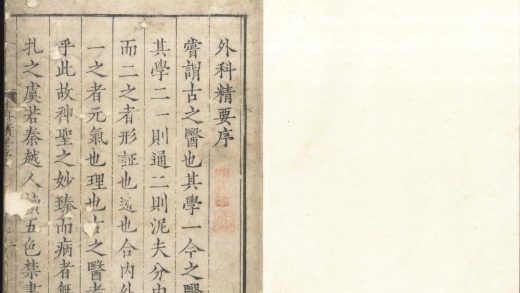 外科精要序
嘗謂古之醫也其學一今之醫
其學二一則通二則泥夫分內
而二之者形証也迹也合內外
一之者元氣也理也古之醫者
乎此故神聖之妙臻而病者無
扎之虞若秦越人五色禁書